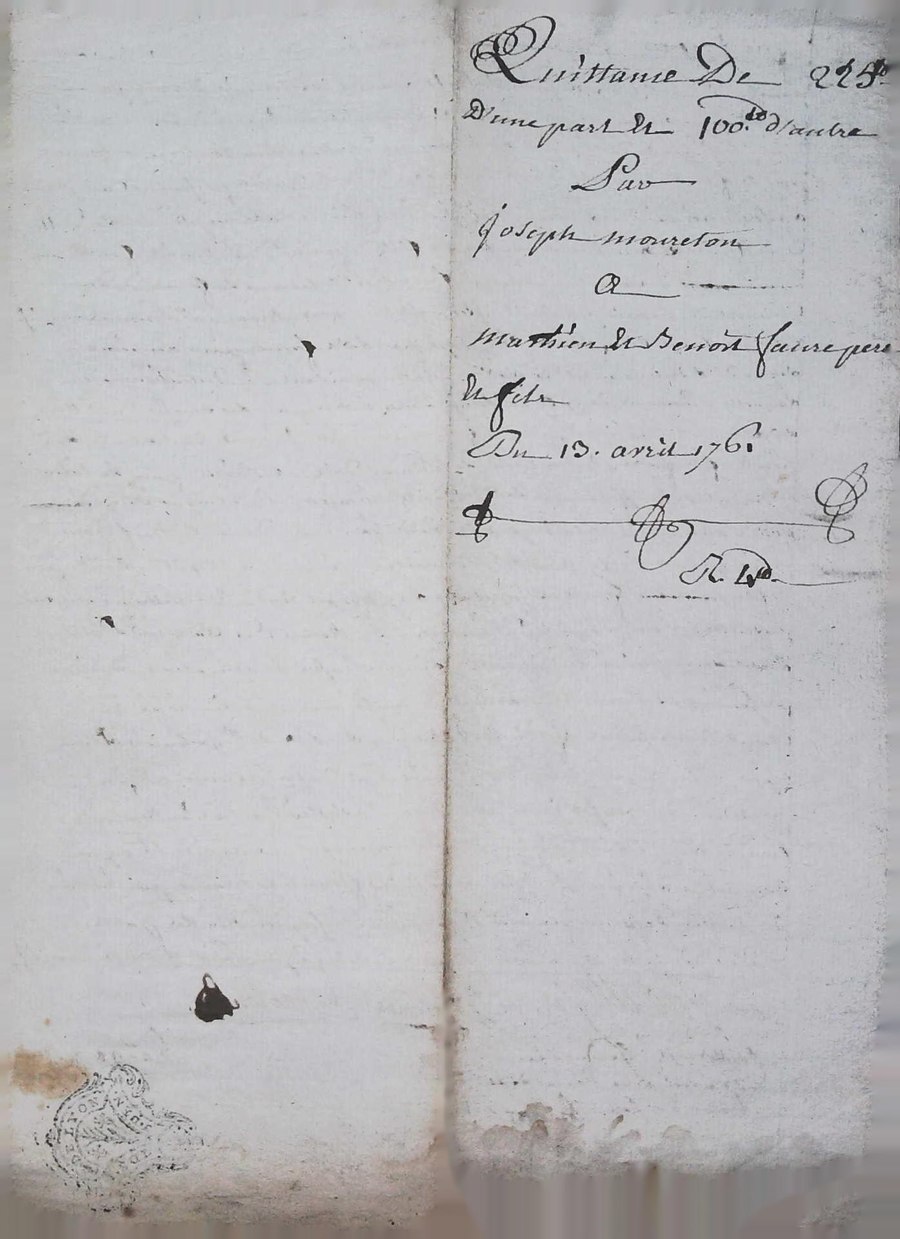 Quittance De 225 lt
D'une part Et 100 lt d'autre
Par
joseph moureton
A
mathieu Et Benoit faure pere
Et fils
Du 13. avril 1761
R. 4 lt
LYON